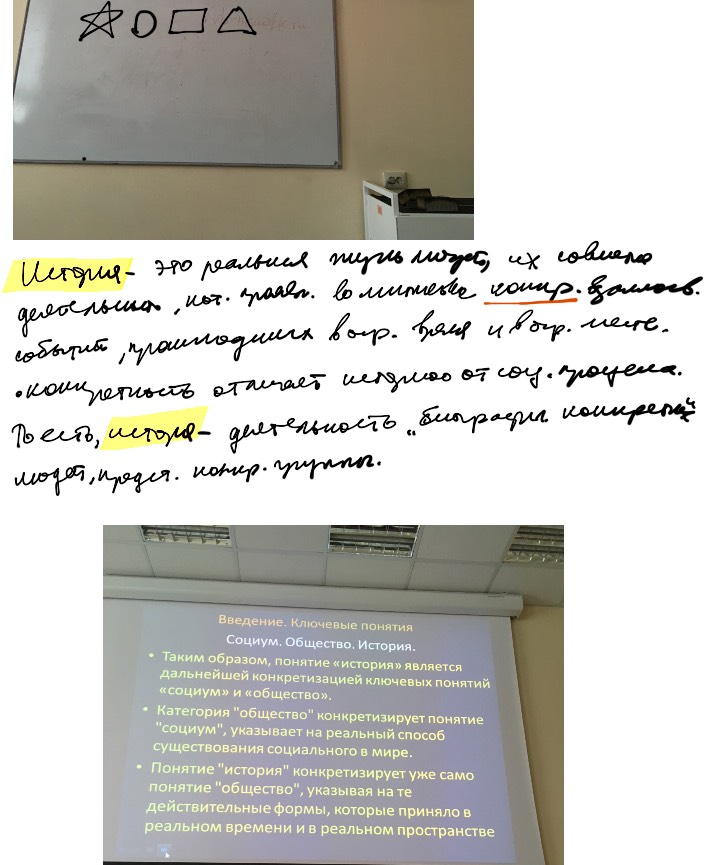 История – это реальная жизнь людей, их совместн
деятельность, кот. прояв. во множестве конкр. взаимос.
событий, произошедших в опр. время и в опр. месте.
• конкретность отличает историю от соц. процесса.
То есть, история – деятельность „биографи конкретных"
людей, предст. конкр. группы.
Введение. Ключевые понятия
Социум. Общество. История.
• Таким образом, понятие «история» является
дальнейшей конкретизацией ключевых понятий
«социум» и «общество».
• Категория "общество" конкретизирует понятие
"социум", указывает на реальный способ
существования социального в мире.
• Понятие "история" конкретизирует уже само
понятие "общество", указывая на те
действительные формы, которые приняло в
реальном времени и в реальном пространстве